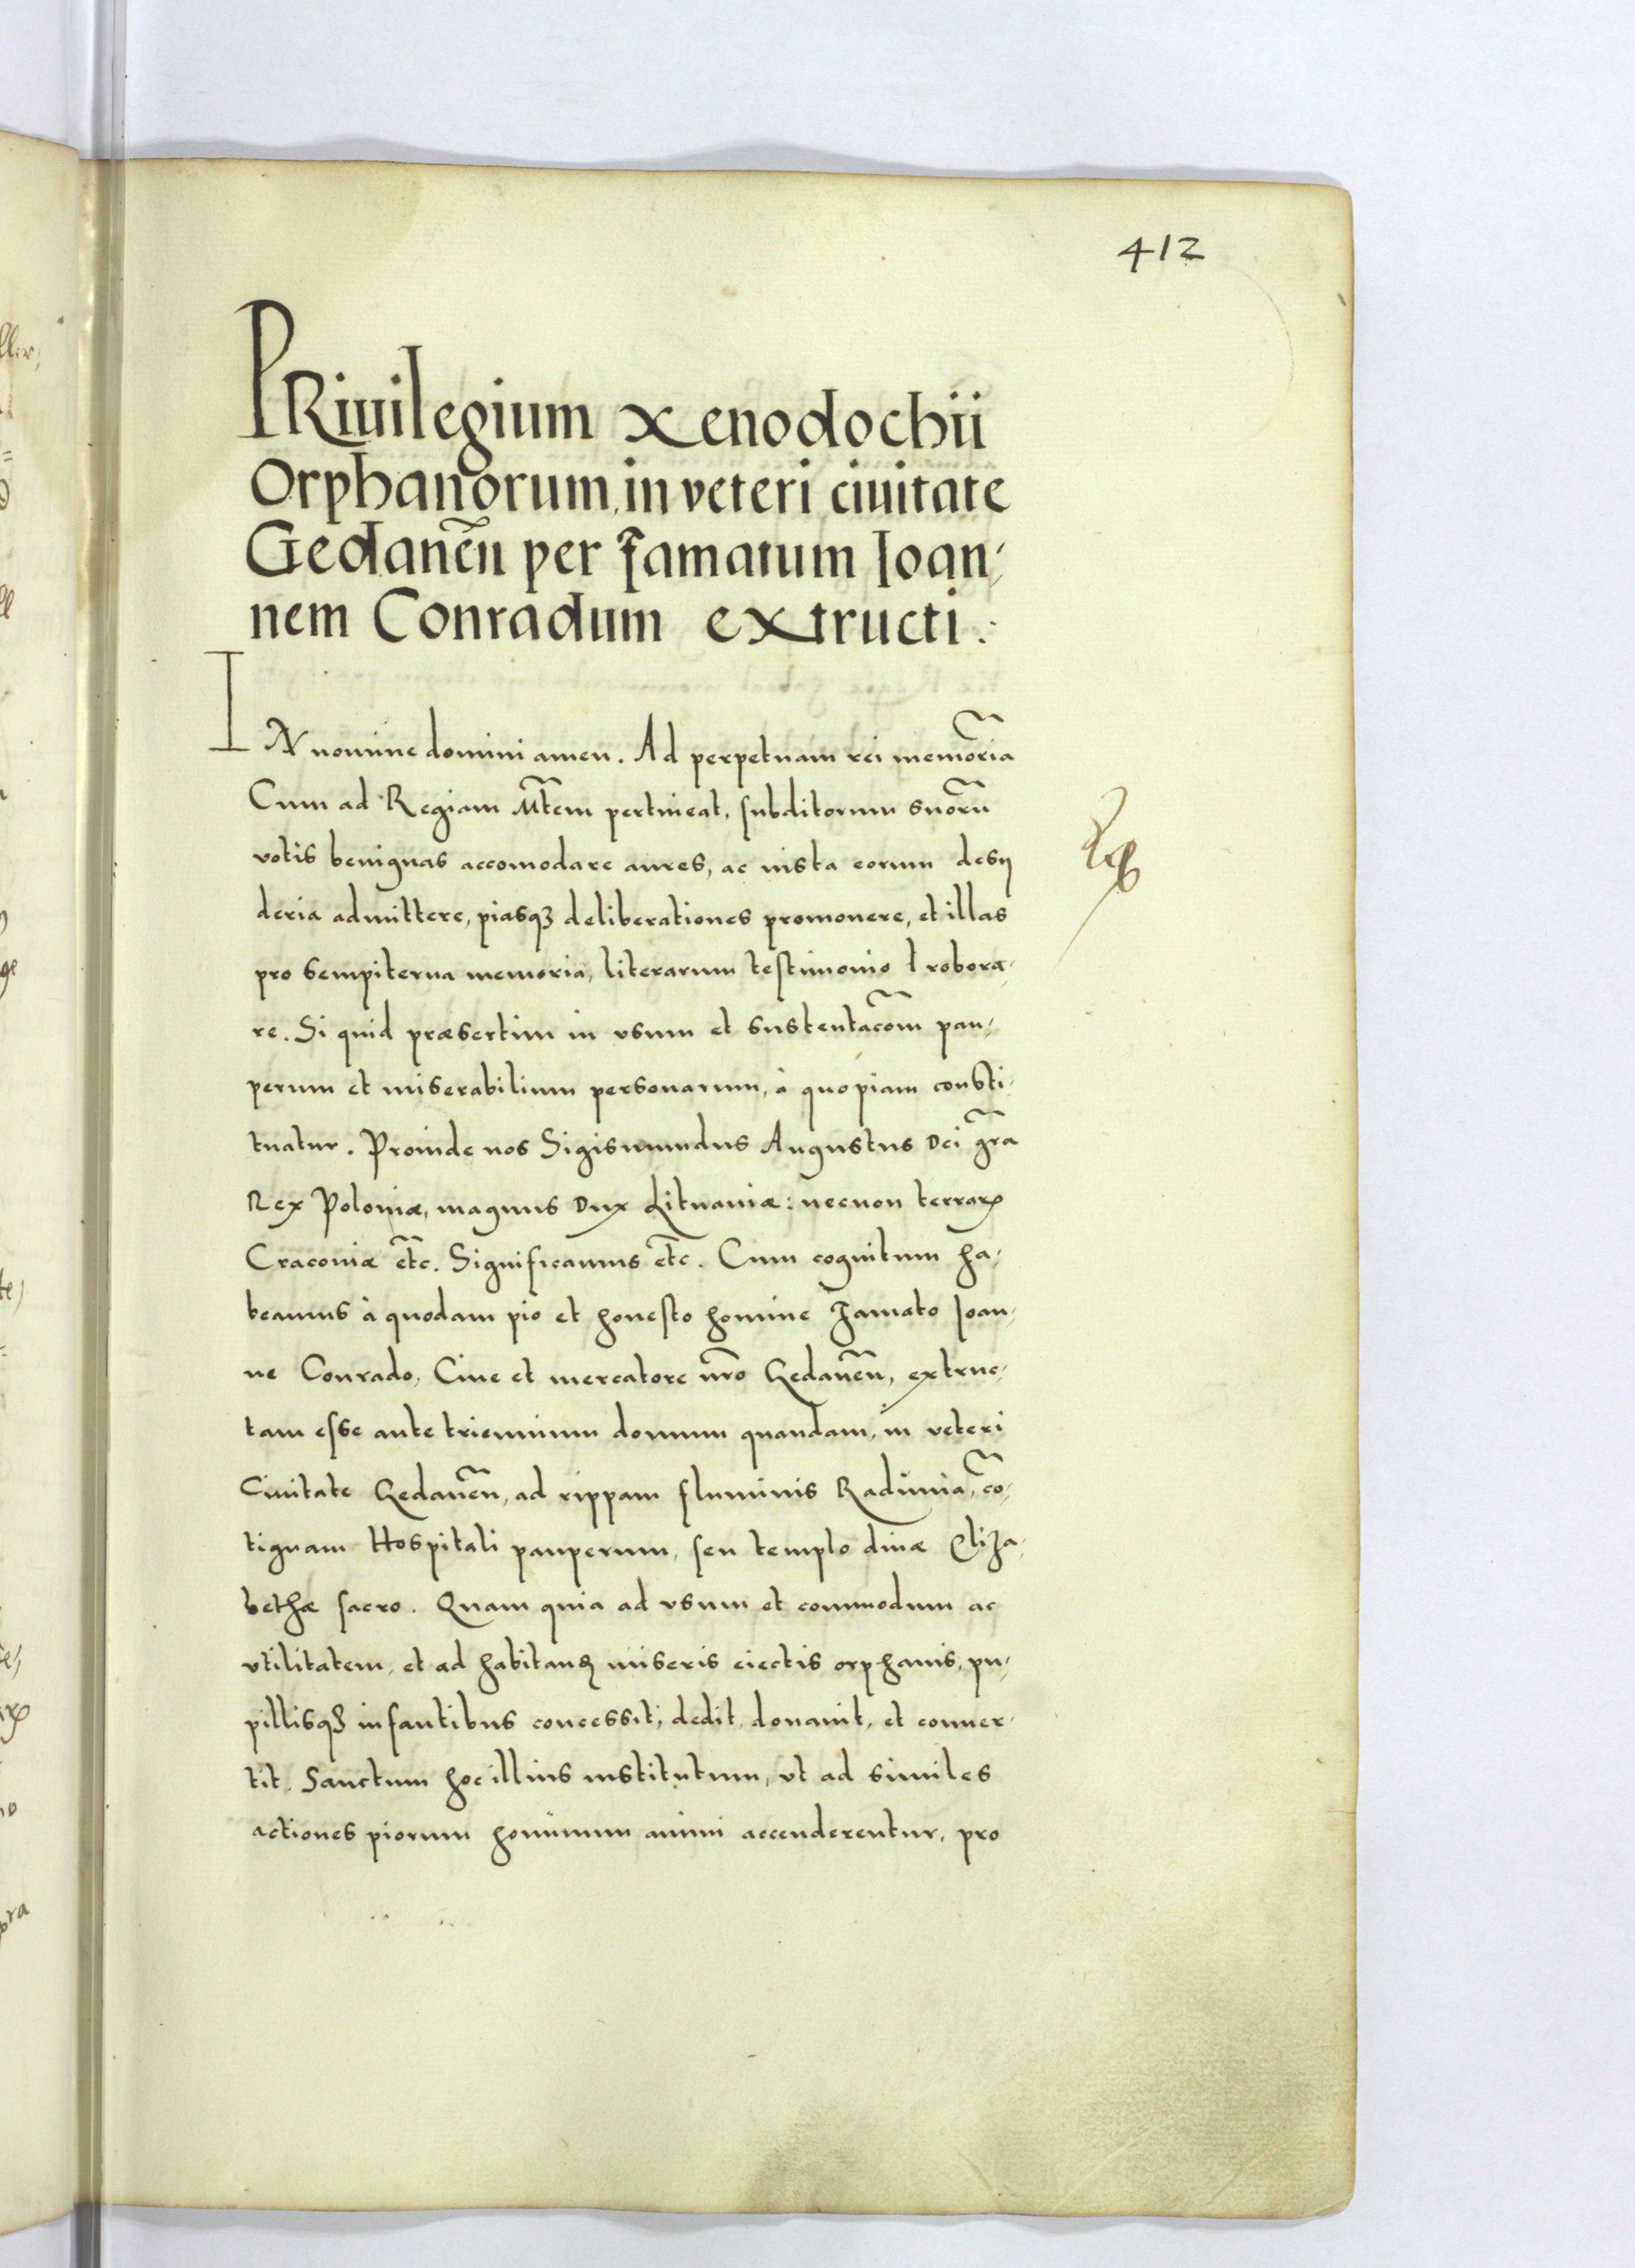 412
PRiuilegium xenodochii
Orphanorum, in veteri ciuitate
Gedanen̄ per famatum Ioan,
nem Conradum extructi.
IN nomine domini amen. Ad perpetuam rei memoriã
Cum ad Regiam Mtem̃ pertineat, subditorum suorũ
votis benignas accomodare aures, ac iusta eorum desy
deria admittere, piasqꝫ deliberationes promouere, et illas
pro sempiterna memoria, literarum testimonio robora,
re. Si quid præsertim in vsum et sustentac̃om pau,
perum et miserabilium personarum, à quopiam consti,
tuatur. Proinde nos Sigismundus Augustus Dei gr̃a
Rex Poloniæ, magnus Dux Lituaniæ: necnon terraꝝ
Cracouiæ etc̃. Significamus etc̃. Cum cognitum ha,
beamus à quodam pio et honesto homine Famato Ioan,
ne Conrado, Ciue et mercatore nr̃o Gedanen̄, extruc,
tam esse ante triennium domum quandam, in veteri
Ciuitate Gedanen̄, ad rippam fluminis Radunia, cõ,
tiguam Hospitali pauperum, seu templo diuæ Eliza,
bethæ sacro. Quam quia ad vsum et commodum ac
vtilitatem, et ad habitanđ miseris eiectis orphanis, pu,
pillisqꝫ infantibus concessit, dedit, donauit, et conuer,
tit. Sanctum hoc illius institutum, vt ad similes
actiones piorum hominum animi accenderentur, pro